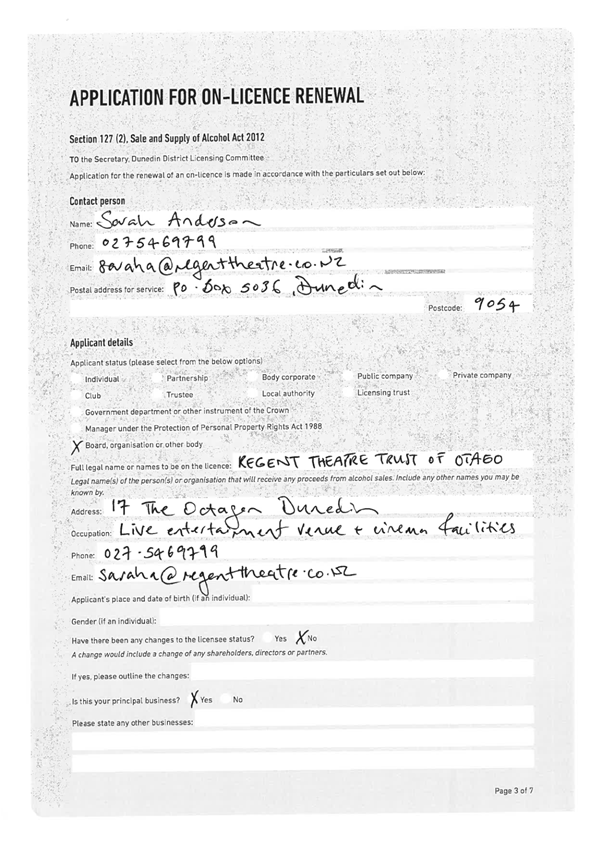 APPLICATION FOR ON-LICENCE RENEWAL
Section 127 (2), Sale and Supply of Alcohol Act 2012
TO the Secretary, Dunedin District Licensing Committee
Application for the renewal of an on-licence is made in accordance with the particulars set out below:
Contact person
Name: Sarah Anderson
Phone: 0275469799
Email: saraha@regenttheatre.co.NZ
Postal address for service: PO. Box 5036, Dunedin
Postcode: 9054
Applicant details
Applicant status (please select from the below options)
Individual Partnership Body corporate Public company Private company
Club Trustee Local authority Licensing trust
Government department or other instrument of the Crown
Manager under the Protection of Personal Property Rights Act 1988
X Board, organisation or other body
Full legal name or names to be on the licence: REGENT THEATRE TRUST OF OTAGO
Legal name(s) of the person(s) or organisation that will receive any proceeds from alcohol sales. Include any other names you may be
known by.
Address: 17 The Octagon Dunedin
Occupation: Live entertainment venue + cinema facilities
Phone: 027.5469799
Email: Saraha@regenttheatre.co.NZ
Applicant's place and date of birth (if an individual):
Gender (if an individual):
Have there been any changes to the licensee status? Yes X No
A change would include a change of any shareholders, directors or partners.
If yes, please outline the changes:
Is this your principal business? X Yes No
Please state any other businesses:
Page 3 of 7